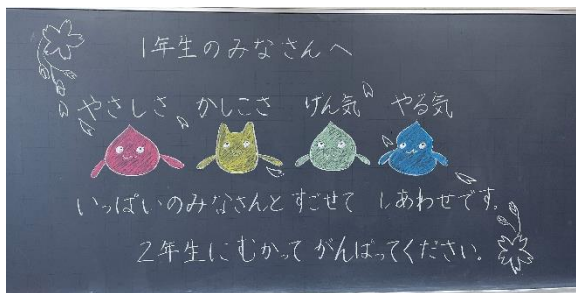 1年生のみなさんへ
やさしさ かしこさ げん気 やる気
いっぱいのみなさんと すごせて しあわせです。
2年生に むかって がんばってください。